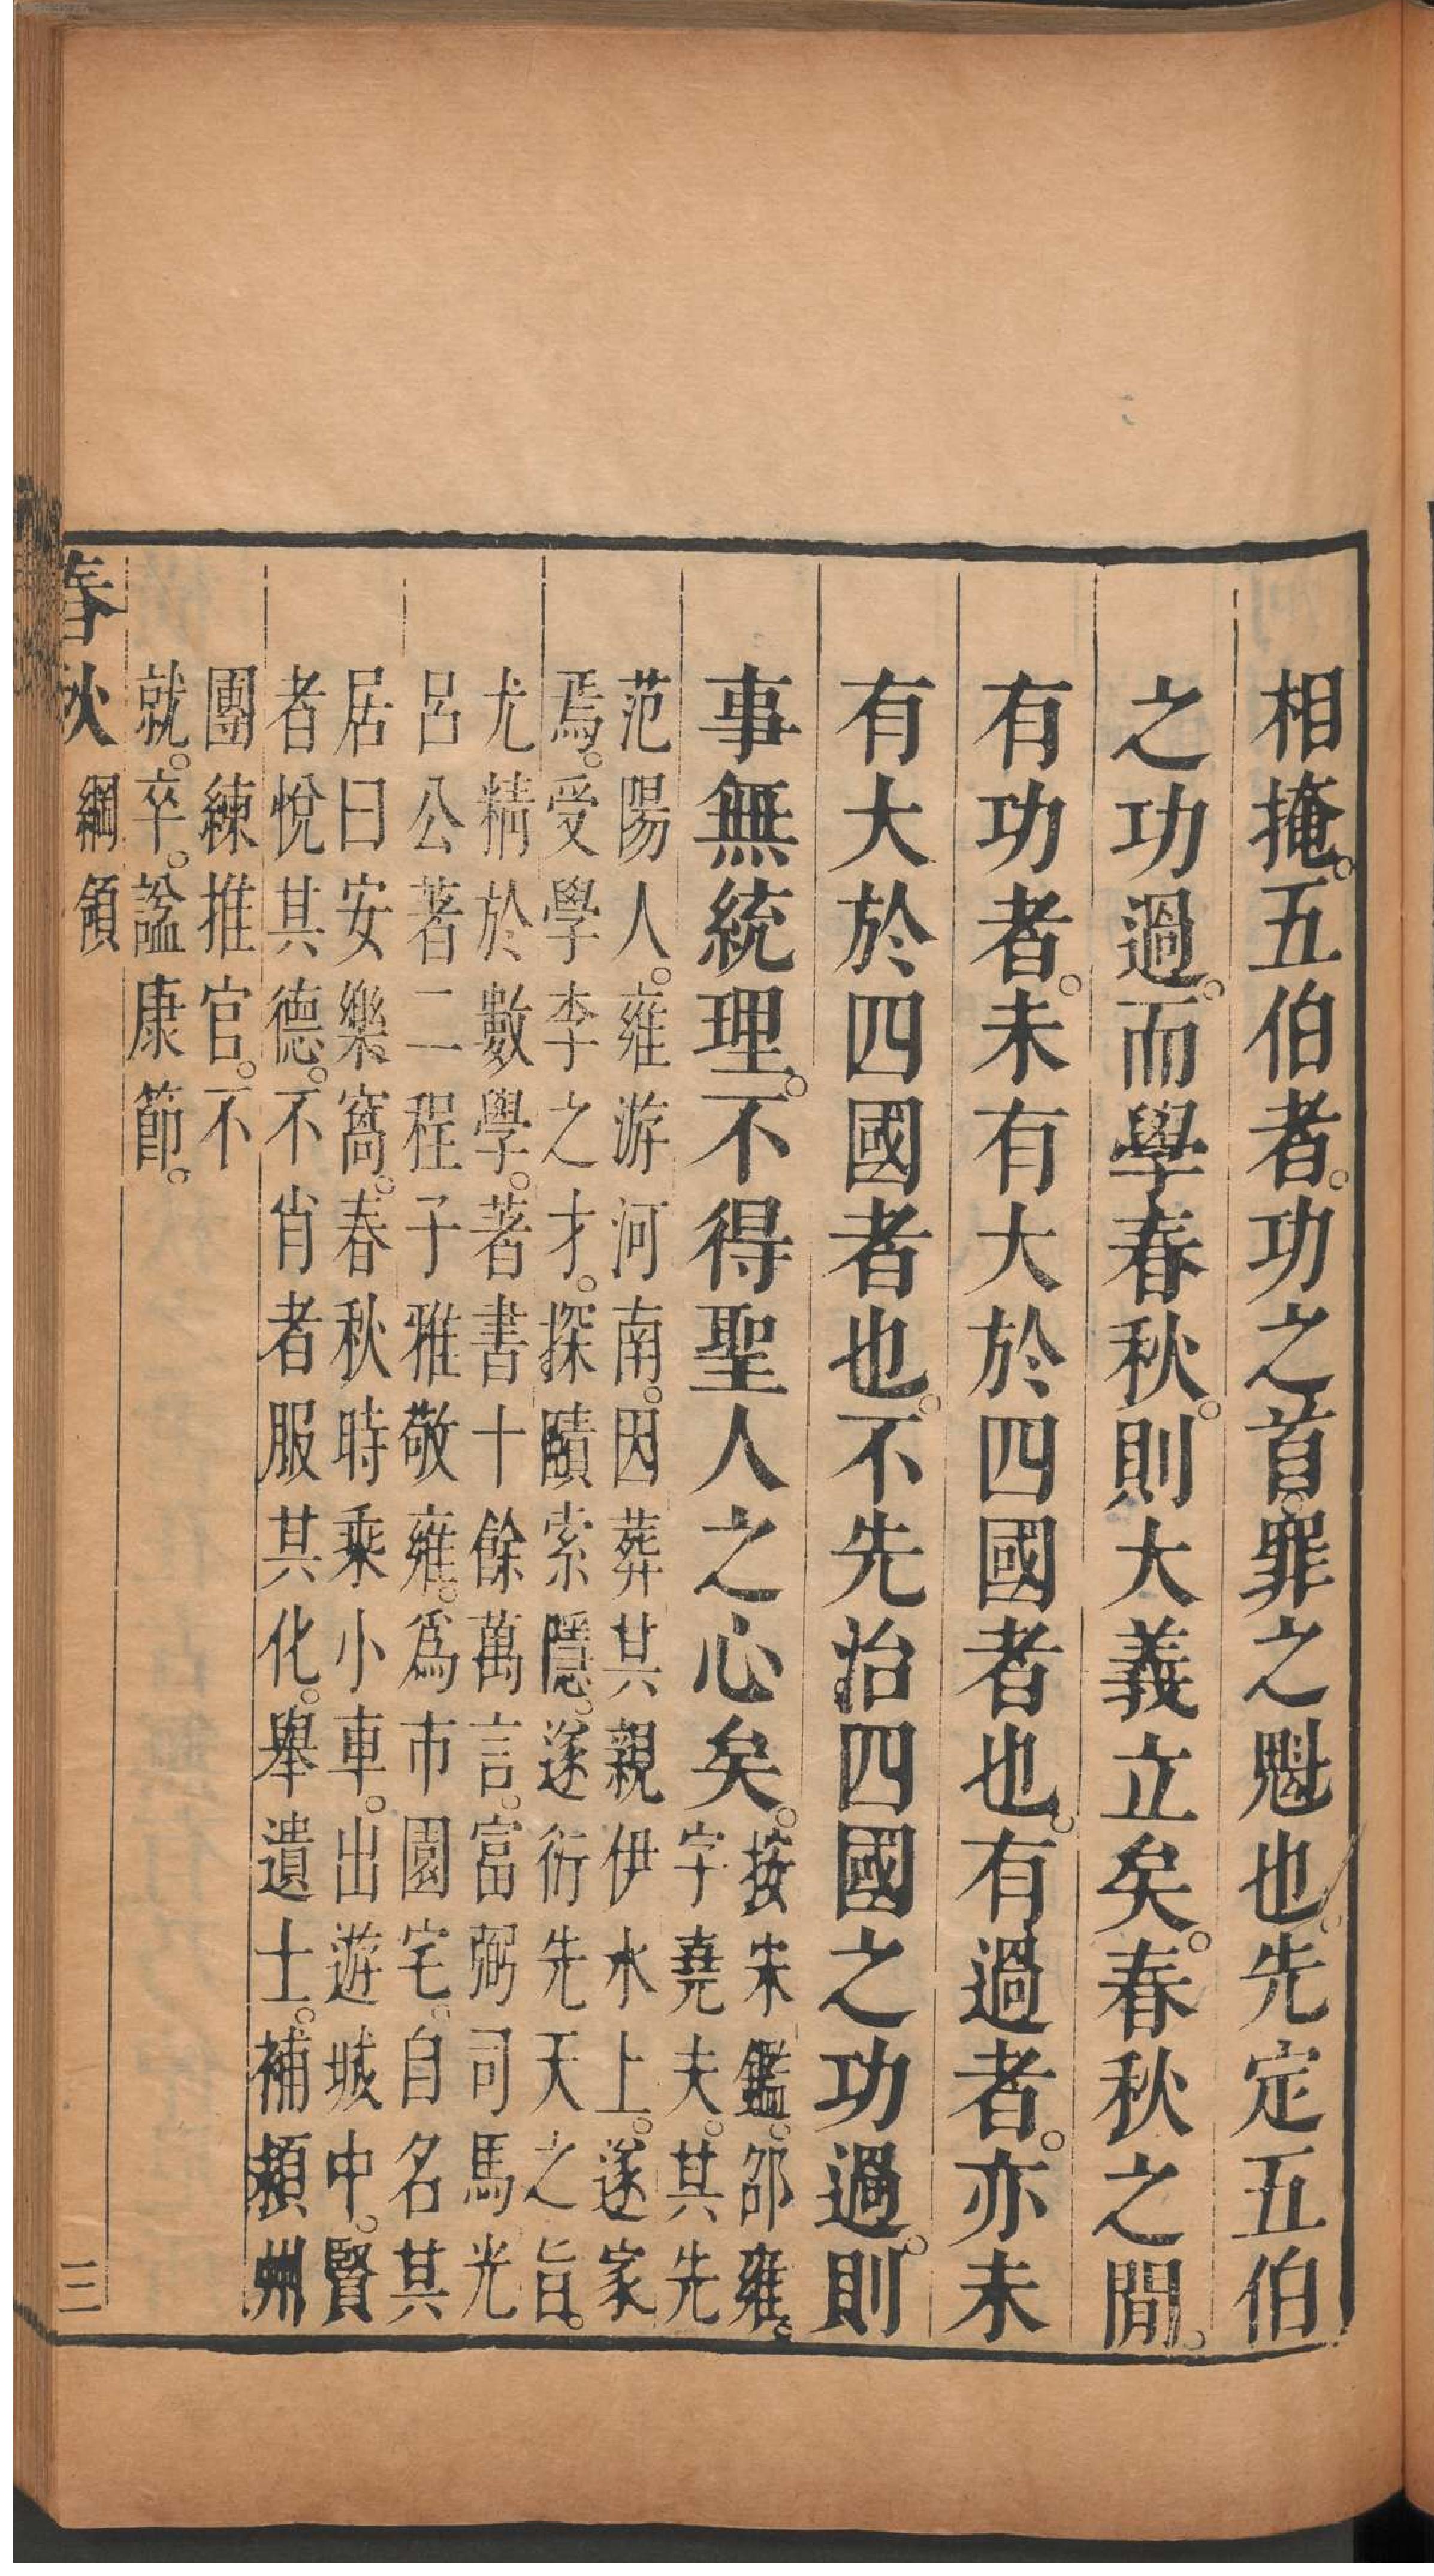 相掩。五伯者。功之首。罪之魁也。先定五伯
之功過。而學春秋。則大義立矣。春秋之閒。
有功者。未有大於四國者也。有過者。亦未
有大於四國者也。不先治四國之功過。則
事無統理。不得聖人之心矣。
按宋鑑。邵雍。
字堯夫。其先
范陽人。雍游河南。因葬其親伊水上。遂家
焉。受學李之才。探賾索隱。遂衍先天之旨。
尤精於數學。著書十餘萬言。富弼司馬光
呂公著二程子雅敬雍。爲市園宅。自名其
居曰安樂窩。春秋時乘小車。出遊城中。賢
者悅其德。不肖者服其化。舉遺士。補潁州
團練推官。不
就。卒。諡康節。
春秋 綱領 三